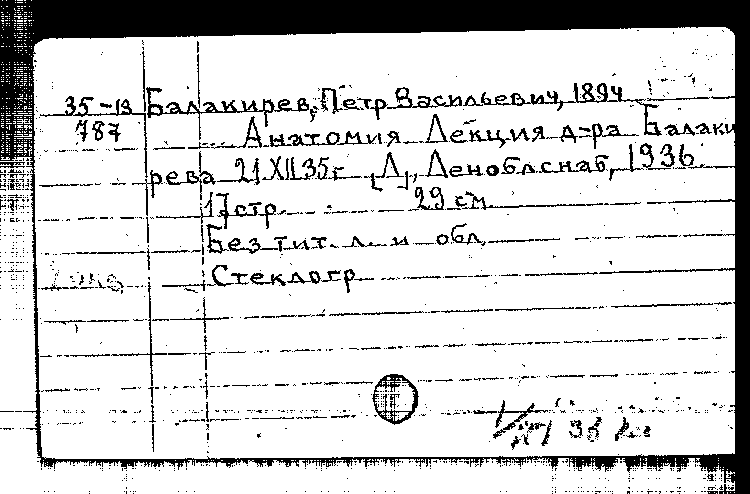 35-13 Балакирев, Петр Васильевич, 1894
787 Анатомия Лекция д-ра Балаки
рева 21 XII 35 г [Л], Леноблснаб, 1936.
17 стр. 29 см
Без тит. л. и обл.
Стеклогр
36